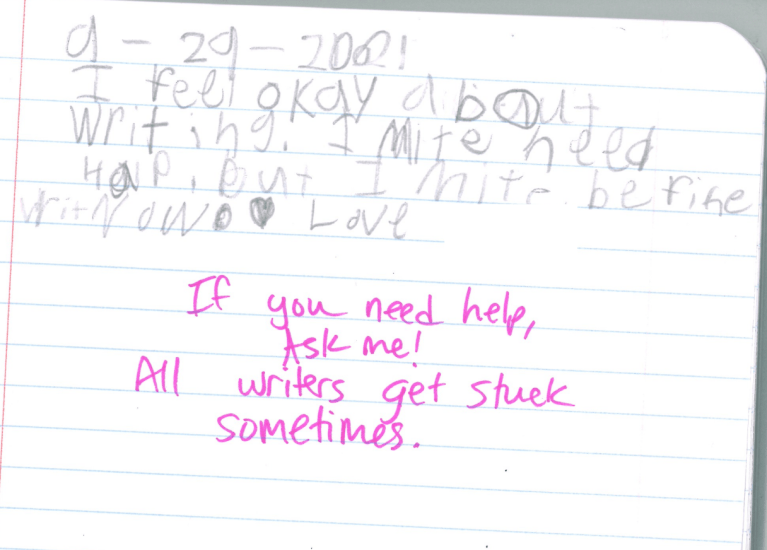 9-29-2001
I feel okay about
writing. I mite need
Halp, but I mite be fine
writ Now. ♥ Love
If you need help,
Ask me!
All writers get stuck
sometimes.